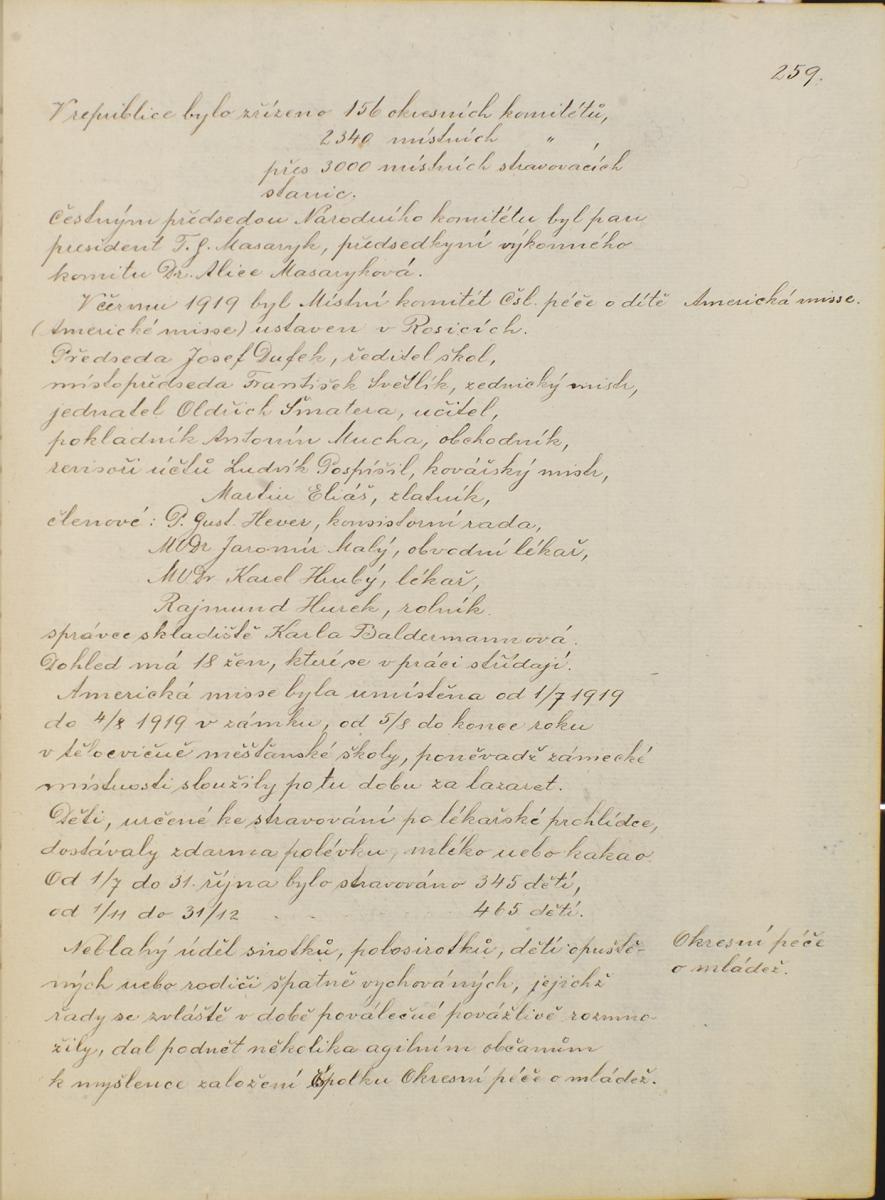 259.
V republice bylo zřízeno 156 okresních komitétů,
2340 místních " ,
přes 3000 místních stravovacích
stanic.
Čestným předsedou Národního komitétu byl pan
president T. G. Masaryk, předsedkyní výkonného
komitu Dr. Alice Masaryková.
V červnu 1919 byl Místní komitét Čsl. péče o dítě
Americká misse.
(Americké misse) ustaven v Rosicích.
Předseda Josef Dufek, ředitel škol,
místopředseda František Světlík, zednický mistr,
jednatel Oldřich Šmatera, učitel,
pokladník Antonín Mucha, obchodník,
revisoři účtů Ludvík Pospíšil, kovářský mistr,
Martin Eliáš, zlatník,
členové: P. Gust. Hever, konsistorní rada,
MUDr Jaromír Malý, obvodní lékař,
MUDr Karel Hrubý, lékař,
Rajmund Hurek, rolník.
správce skladiště Karla Baldermannová.
Dohled má 18 žen, které se v práci střídají.
Americká misse byla umístěna od 1/7 1919
do 4/8 1919 v zámku, od 5/8 do konce roku
v tělocvičně měšťanské školy, poněvadž zámecké
místnosti sloužily po tu dobu za lazaret.
Děti, určené ke stravování po lékařské prohlídce,
dostávaly zdarma polévku, mléko nebo kakao.
Od 1/7 do 31. října bylo stravováno 345 dětí,
od 1/11 do 31/12 465 dětí.
Neblahý úděl sirotků, polosirotků, dětí opuště-
Okresní péče
o mládež.
ných nebo rodiči špatně vychováných, jejichž
řady se zvláště v době poválečné povážlivě rozmno-
žily, dal podnět několika agilním občanům
k myšlence založení Spolku Okresní péče o mládež.